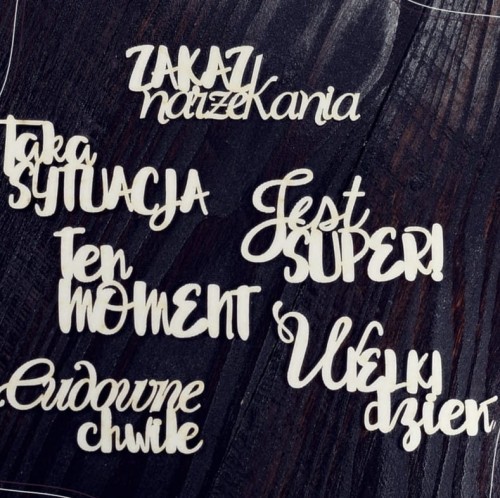 ZAKAZ
narzekania
Taka
SYTUACJA
Jest
SUPER!
Ten
MOMENT
Wielki
dzień
Cudowne
chwile